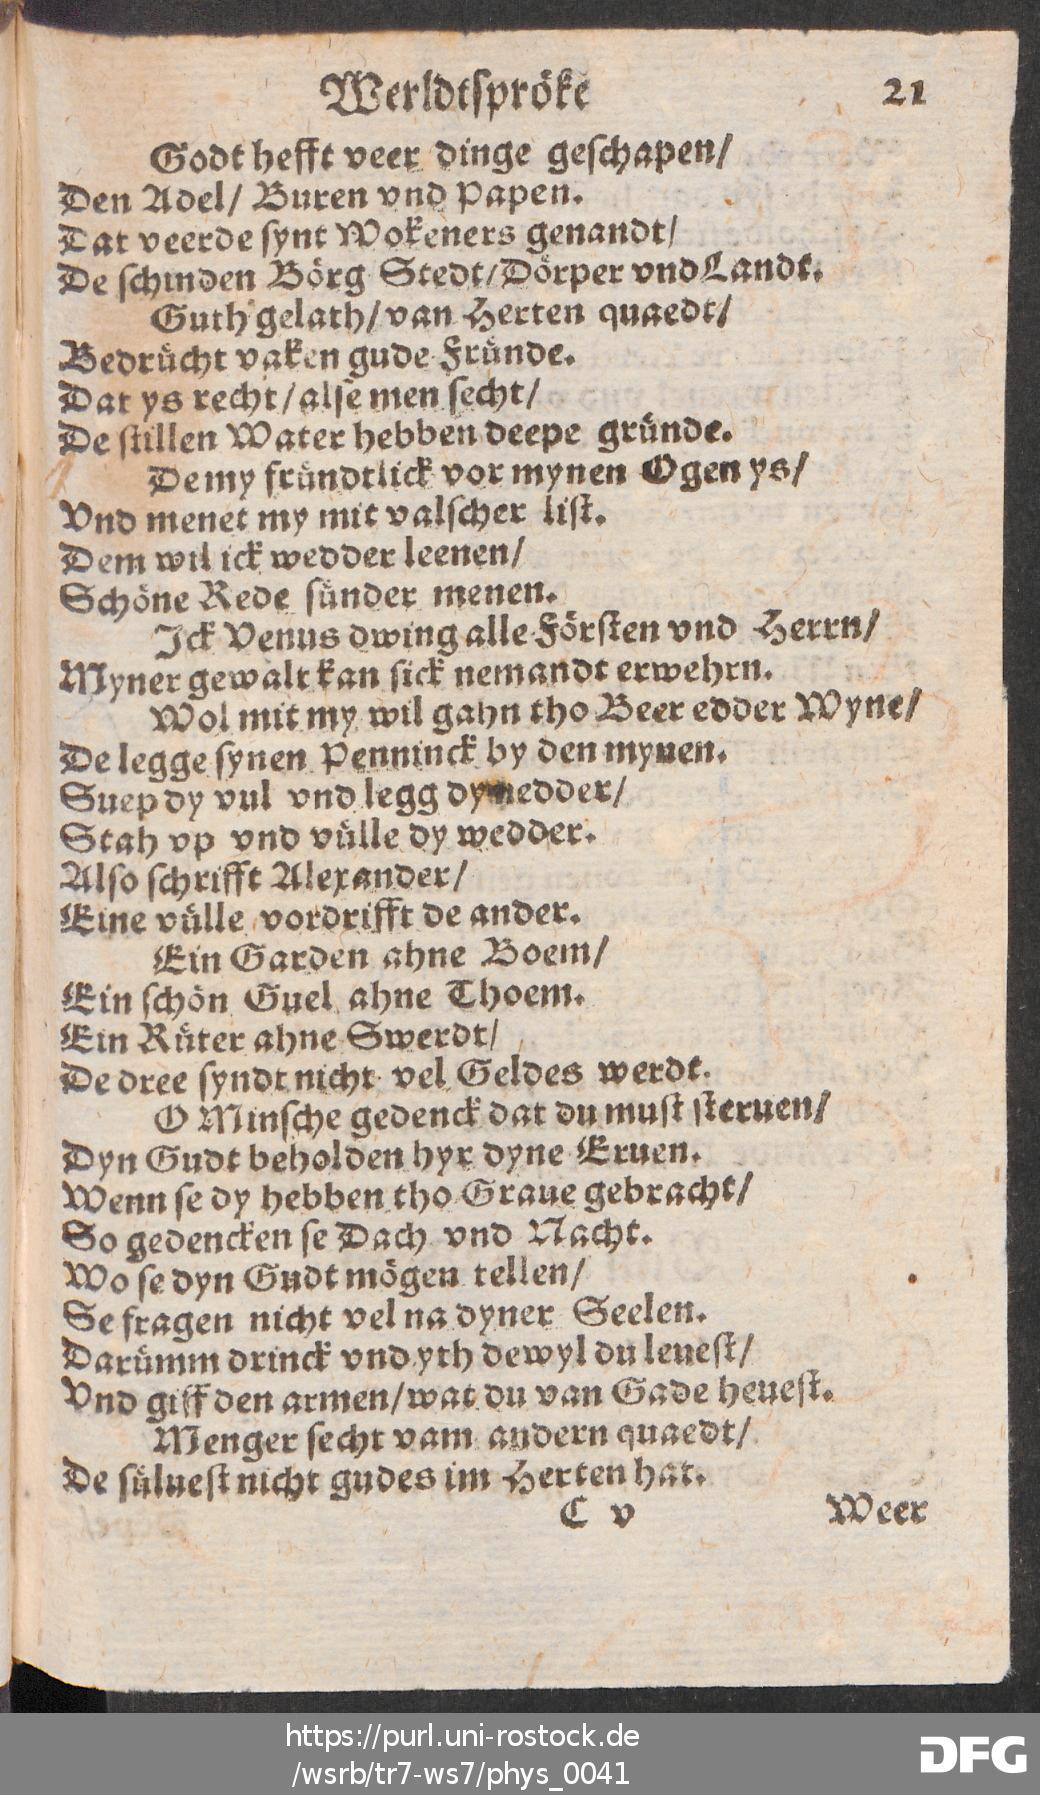 Werldtspröke 21
Godt hefft veer dinge geschapen/
Den Adel/ Buren vnd Papen.
Dat veerde synt Wokeners genandt/
De schinden Börg Stedt/ Dörper vnd Landt.
Guth gelath/ van Herten quaedt/
Bedrücht vaken gude Fründe.
Dat ys recht/ alse men secht/
De stillen Water hebben deepe gründe.
De my fründtlick vor mynen Ogen ys/
Vnd menet my mit valscher list.
Dem wil ick wedder leenen/
Schöne Rede sünder menen.
Ick Venus dwing alle Försten vnd Herrn/
Myner gewalt kan sick nemandt erwehrn.
Wol mit my wil gahn tho Beer edder Wyne/
De legge synen Penninck by den mynen.
Suep dy vul vnd legg dy nedder/
Stah vp vnd vülle dy wedder.
Also schrifft Alexander/
Eine vülle vordrifft de ander.
Ein Garden ahne Boem/
Ein schön Guel ahne Thoem.
Ein Rüter ahne Swerdt/
De dree syndt nicht vel Geldes werdt.
O Minsche gedenck dat du must steruen/
Dyn Gudt beholden hyr dyne Eruen.
Wenn se dy hebben tho Graue gebracht/
So gedencken se Dach vnd Nacht.
Wo se dyn Gudt mögen tellen/
Se fragen nicht vel na dyner Seelen.
Darümm drinck vnd yth dewyl du leuest/
Vnd giff den armen/ wat du van Gade heuest.
Menger secht vam andern quaedt/
De süluest nicht gudes im Herten hat.
C v Weer
https://purl.uni-rostock.de
/wsrb/tr7-ws7/phys_0041
DFG